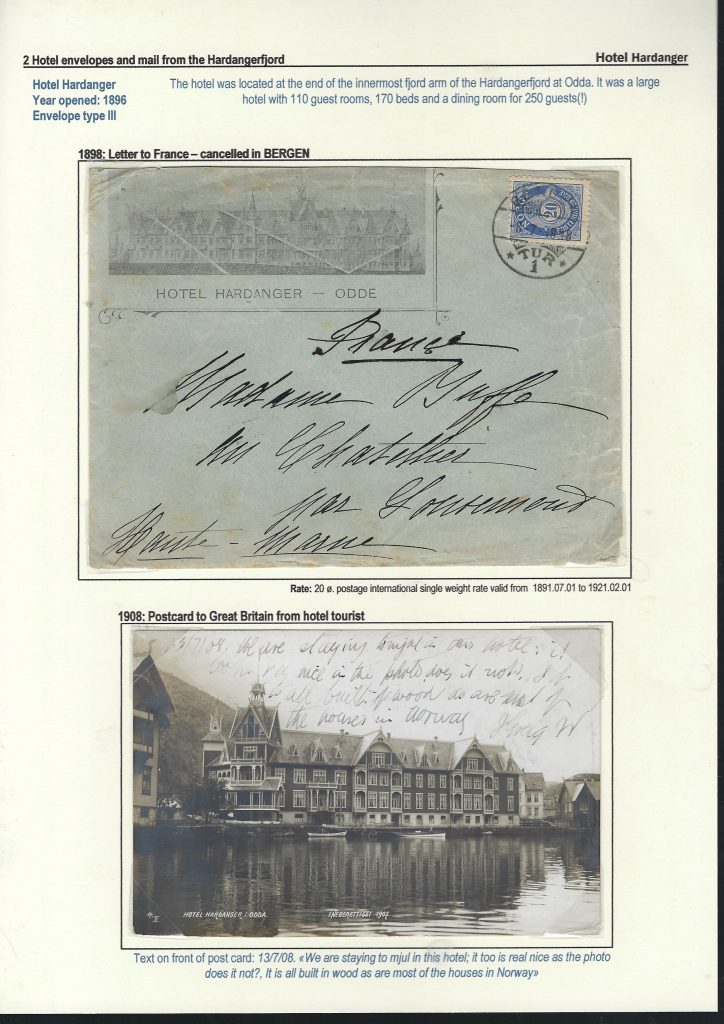 2 Hotel envelopes and mail from the Hardangerfjord
Hotel Hardanger
Hotel Hardanger
Year opened: 1896
Envelope type III
The hotel was located at the end of the innermost fjord arm of the Hardangerfjord at Odda. It was a large
hotel with 110 guest rooms, 170 beds and a dining room for 250 guests(!)
1898: Letter to France – cancelled in BERGEN
HOTEL HARDANGER — ODDE
20
TUR
1
France
Madame
au Chatellier
par
Haute - Marne
Rate: 20 ø. postage international single weight rate valid from 1891.07.01 to 1921.02.01
1908: Postcard to Great Britain from hotel tourist
13/7/08. We are staying in this hotel; it
nice in the photo does it not?
is all built of wood as are most of
the houses in Norway
HOTEL HARDANGER I ODDA.
ENEBERETTIGET 1907.
Text on front of post card: 13/7/08. «We are staying to mjul in this hotel; it too is real nice as the photo
does it not?, It is all built in wood as are most of the houses in Norway»